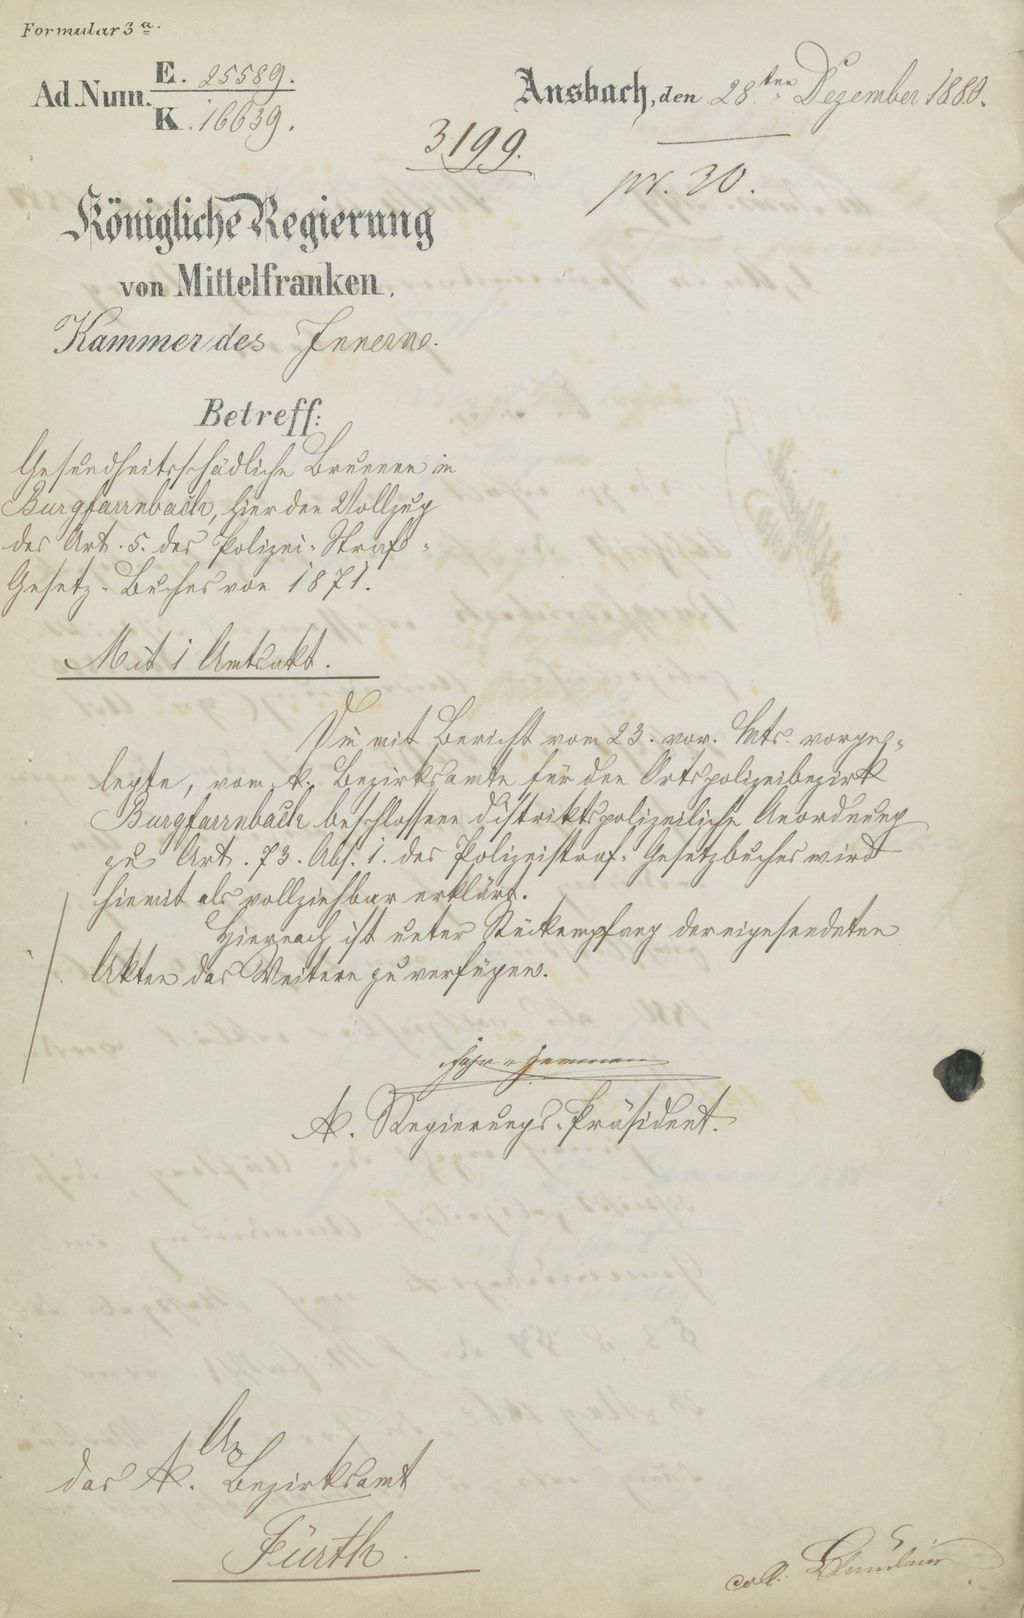 Formular 3 a.
Ad. Num. E. 25589.
K. 16639.
Ansbach, den 28ten Dezember 1880.
3199.
pr. 30.
Königliche Regierung
von Mittelfranken,
Kammer des Innern.
Betreff:
Gesundheitsschädliche Brunnen in
Burgfarrnbach, hier den Vollzug
des Art. 5. des Polizei-Straf-
Gesetz-Buches von 1871.
Mit 1 Amtsakt.
Die mit Bericht vom 23. vor. Mts. vorge-
legte, vom k. Bezirksamte für den Ortspolizeibezirk
Burgfarrnbach beschlossene distriktspolizeiliche Anordnung
zu Art. 73. Abs. 1. des Polizeistraf-Gesetzbuches wird
hiemit als vollziehbar erklärt.
Hiernach ist unter Rückempfang der eingesendeten
Akten das Weitere zu verfügen.
K. Regierungs-Präsident.
An
das K. Bezirksamt
Fürth.
coll.